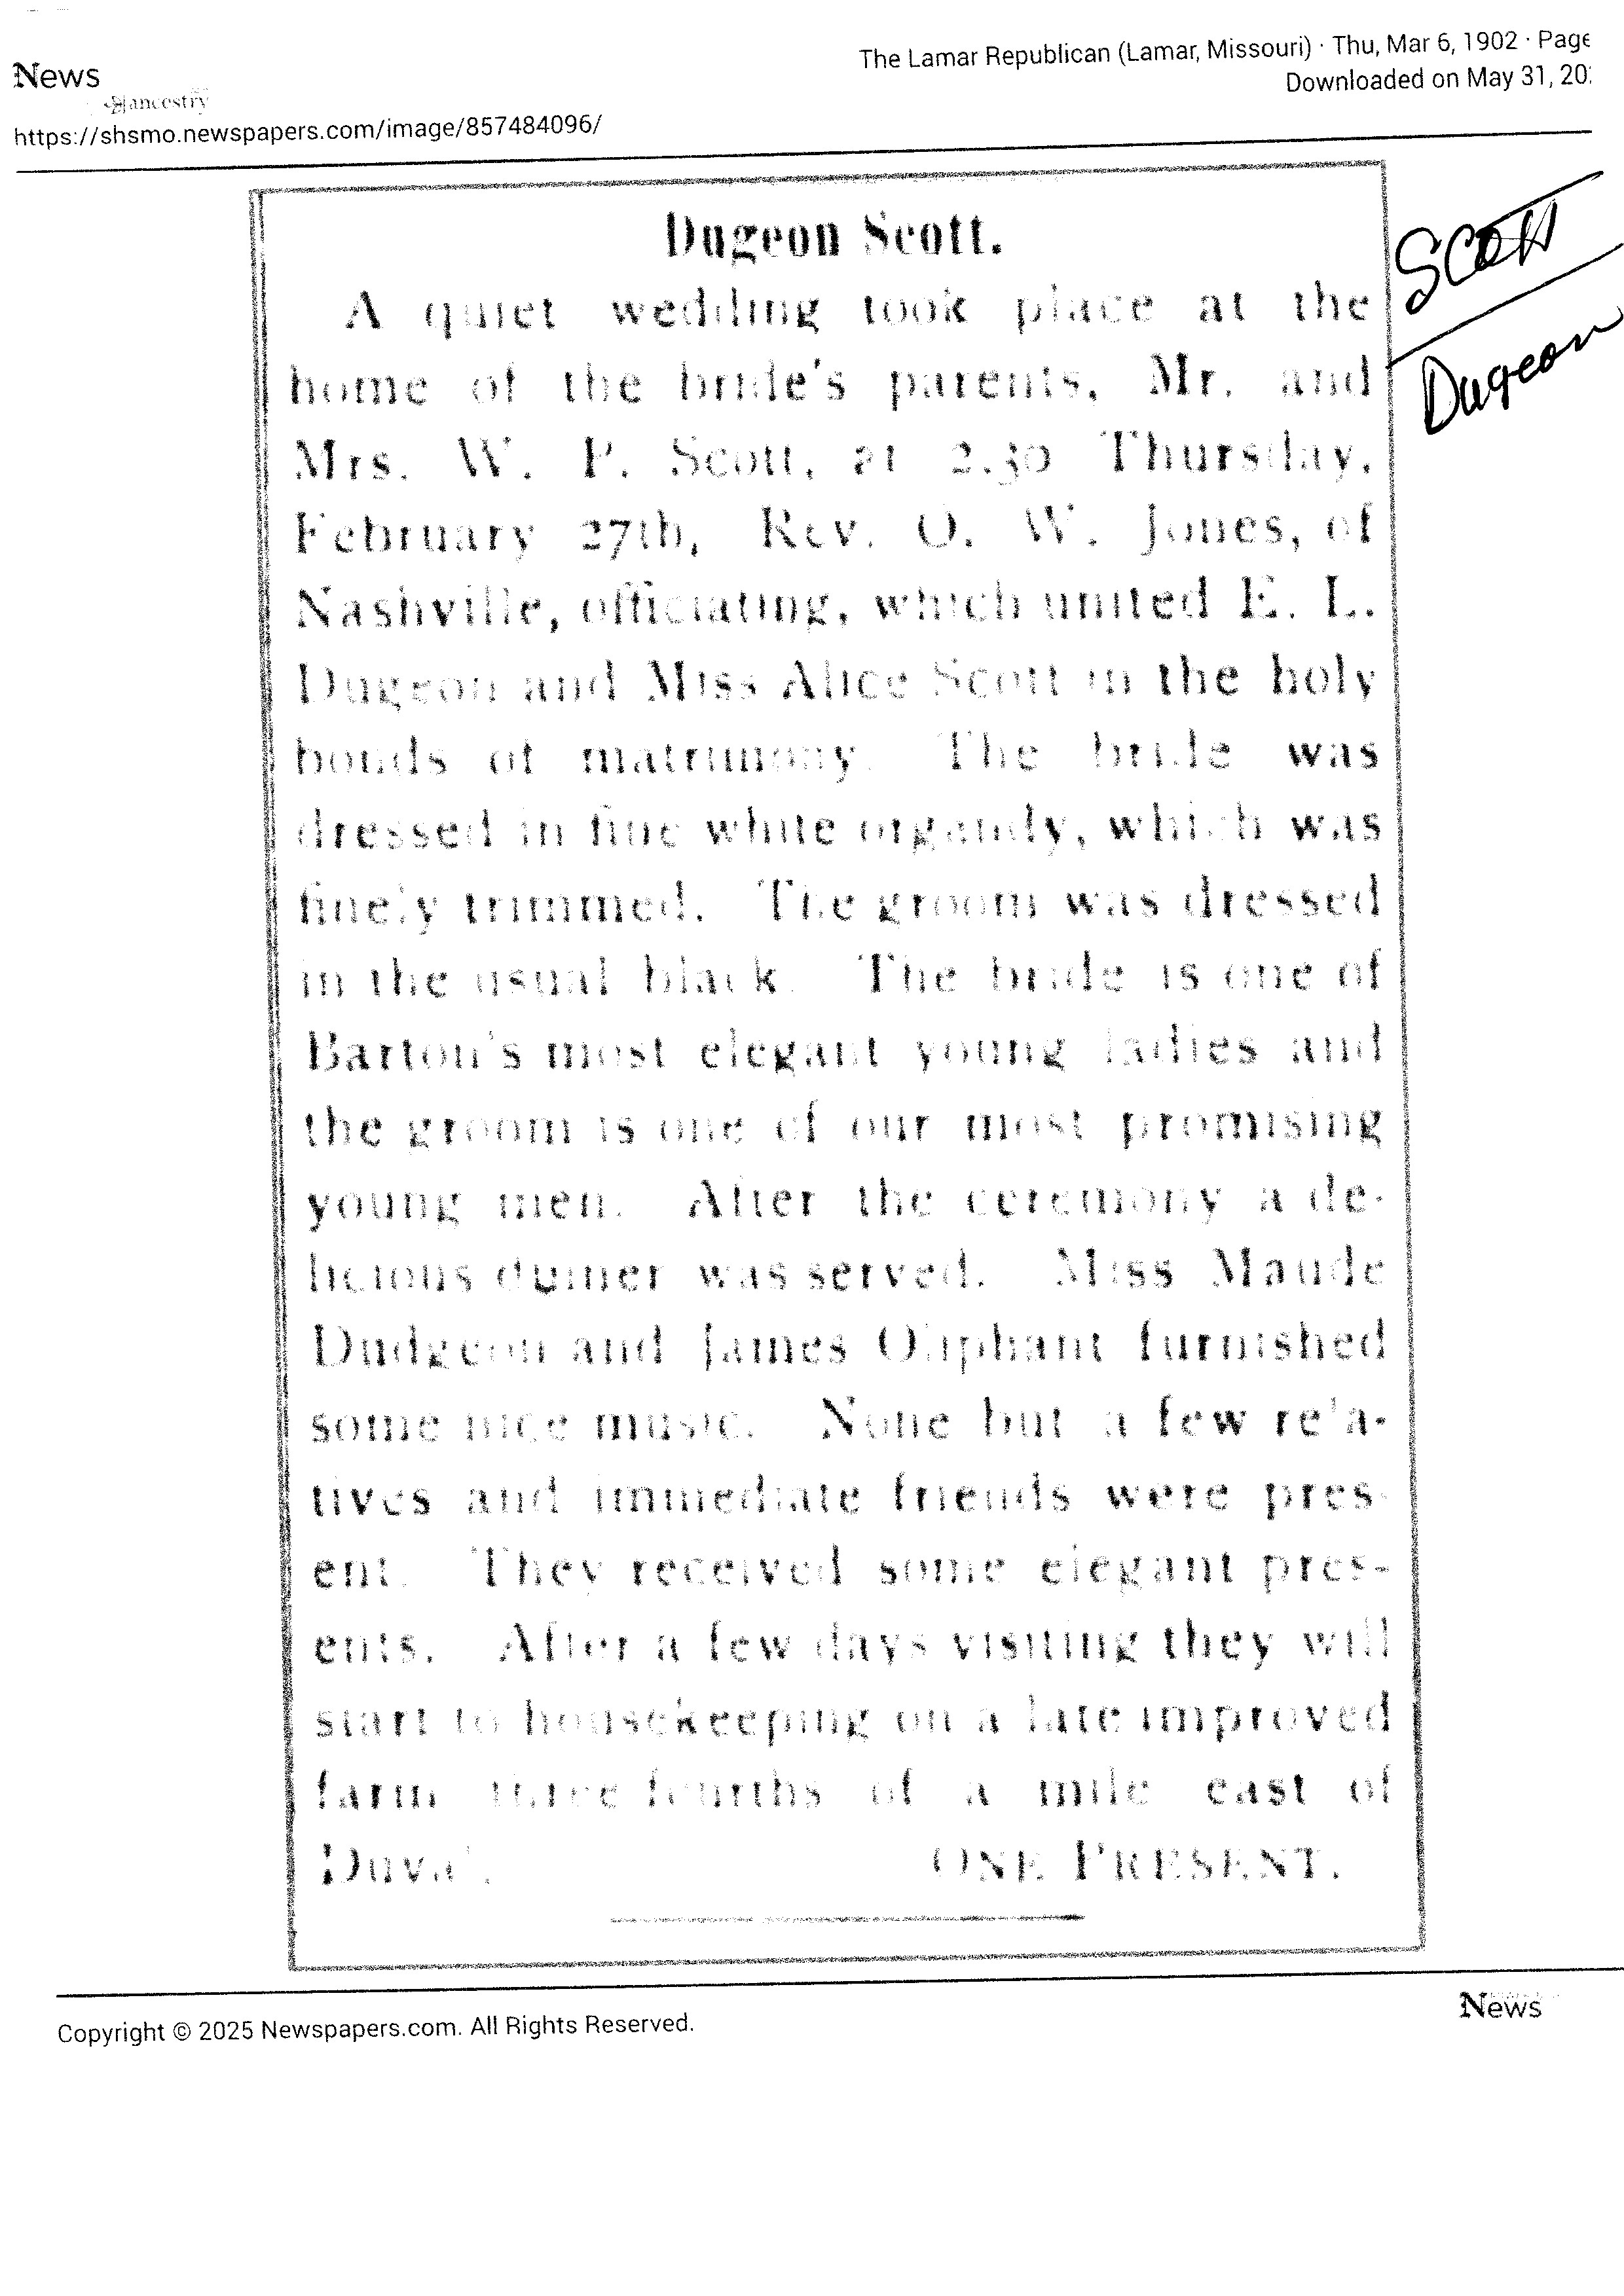 News
ancestry
https://shsmo.newspapers.com/image/857484096/
The Lamar Republican (Lamar, Missouri) · Thu, Mar 6, 1902 · Page
Downloaded on May 31, 20
Dugeon Scott.
A quiet wedding took place at the
home of the bride's parents, Mr. and
Mrs. W. P. Scott, at 2.30 Thursday,
February 27th, Rev. O. W. Jones, of
Nashville, officiating, which united E. L.
Dugeon and Miss Alice Scott in the holy
bonds of matrimony. The bride was
dressed in fine white organdy, which was
finely trimmed. The groom was dressed
in the usual black. The bride is one of
Barton's most elegant young ladies and
the groom is one of our most promising
young men. After the ceremony a de-
licious dinner was served. Miss Maude
Dudgeon and James Oliphant furnished
some nice music. None but a few rela-
tives and immediate friends were pres-
ent. They received some elegant pres-
ents. After a few days visiting they will
start to housekeeping on a late improved
farm three fourths of a mile east of
Duval. ONE PRESENT.
Scott
Dugeon
News
Copyright © 2025 Newspapers.com. All Rights Reserved.